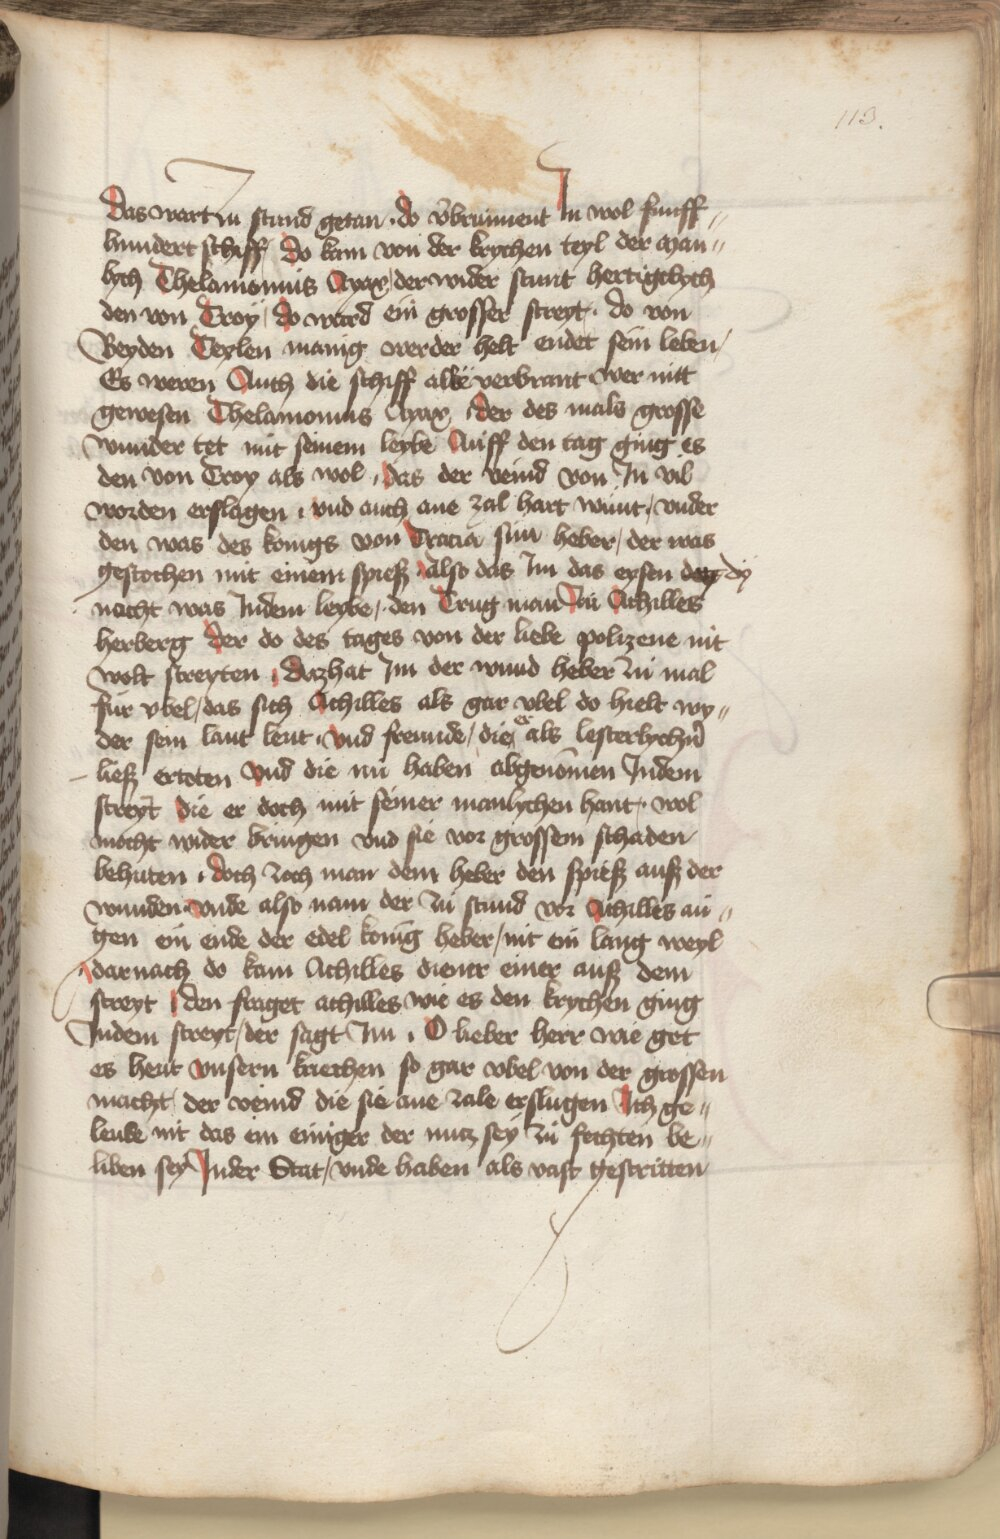 113.
Das wart zu stund getan · do v̈brunnent In wol funff〃
hundert schiff / Do kam von der krychen teyl der man〃
lych Thelamonius Ayax / der wider stunt hertigclych
den von Troy / do ward ein grosser streyt · do von
Beyden Teylen manig werder helt endet sein leben /
Es weren Auch die schiff alle verbrant wer nitt
gewesen Thelamonius Ayax / der des mals grosse
wunder tet mit seinem leybe Auff den tag ging es
den von Troy als wol / das der veind von In vil
worden erslagen / vnd auch ane zal hart wunt / vnder
den was des konigs von Tracia sun heber / der was
gestochen mit einem spiesz / also das Im das eysen dy
nacht was Indem leybe / den Trug man Zu Achilles
herberg der do des tages von der liebe polizene nit
wolt streyten / Daz hat Im der wund heber Zu mal
fur vbel / das sich Achilles als gar vbel do hielt wy〃
der sein lant leut / vnd freunde / die er als lesterlychn̄
liesz ertoten Vnd die nu haben abgenōmen Indem
streyt die er doch mit seiner manlychen hant · wol
mocht wider bringen vnd sie vor grossem schaden
behuten / doch Zoch man dem heber den spiesz ausz der
wunden Vnde also nam der Zu stund vor Achilles au〃
gen ein ende der edel konig heber / nit ein lang weyl
darnach do kam Achilles diener einer ausz dem
streyt / den fraget achilles wie es den krychen ging
Indem streyt / der sagt Im / O lieber herr wie get
es heut vnsern kriechen so gar vbel von der grossen
macht der veind die sie ane zale erslugen Ich ge〃
leube nit das ein einiger der nutz sey Zu fechten be〃
liben sey Inder Stat / vnde haben als vast gestritten